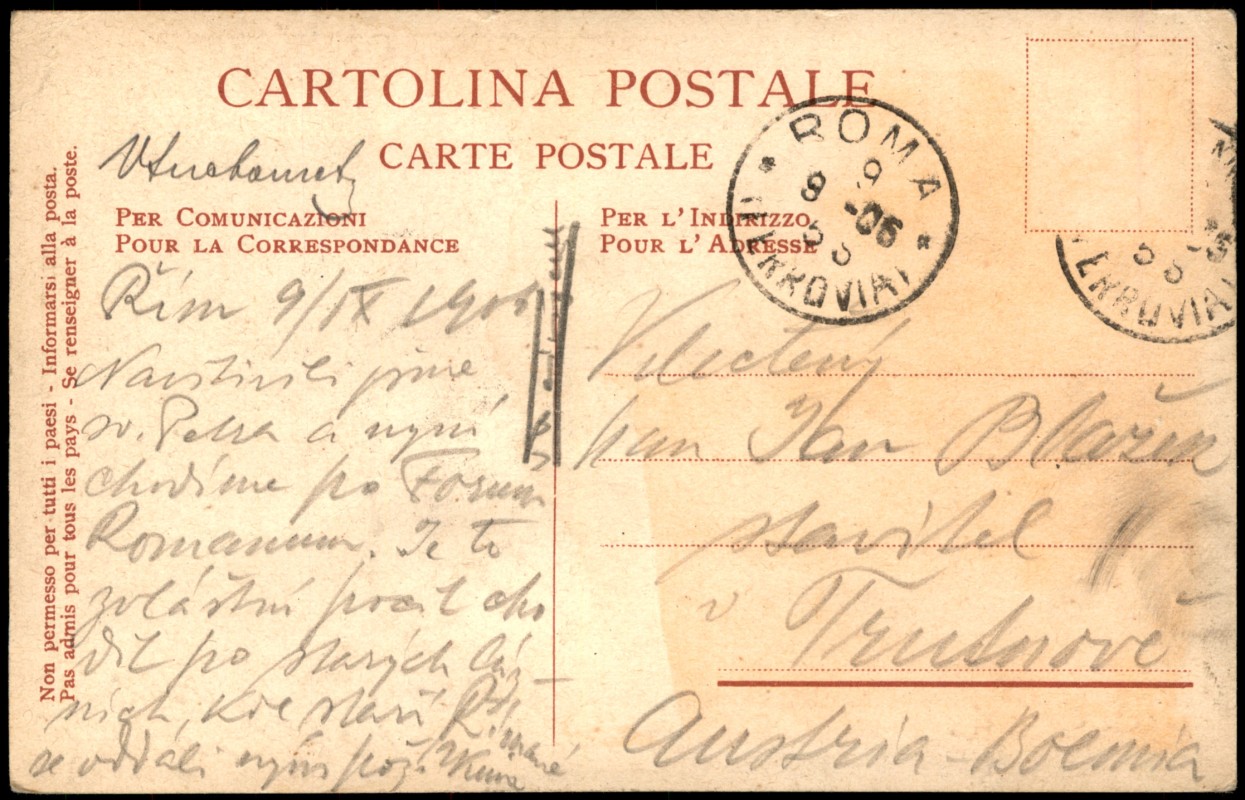 CARTOLINA POSTALE
CARTE POSTALE
PER COMUNICAZIONI
POUR LA CORRESPONDANCE
PER L'INDIRIZZO
POUR L'ADRESSE
ROMA
9 9 -05
FERROVIA
Non permesso per tutti i paesi - Informarsi alla posta.
Pas admis pour tous les pays - Se renseigner à la poste.
Řím 9/IX 1905
Navštívili jsme
sv. Petra a nyní
chodíme po Forum
Romanum. Je to
zvláštní pocit cho
dit po starých láz-
ních, kde staří Římané
se oddáli
Velectěný
pan Jan Blažek
stavitel
v Trutnově
Austria - Boemia